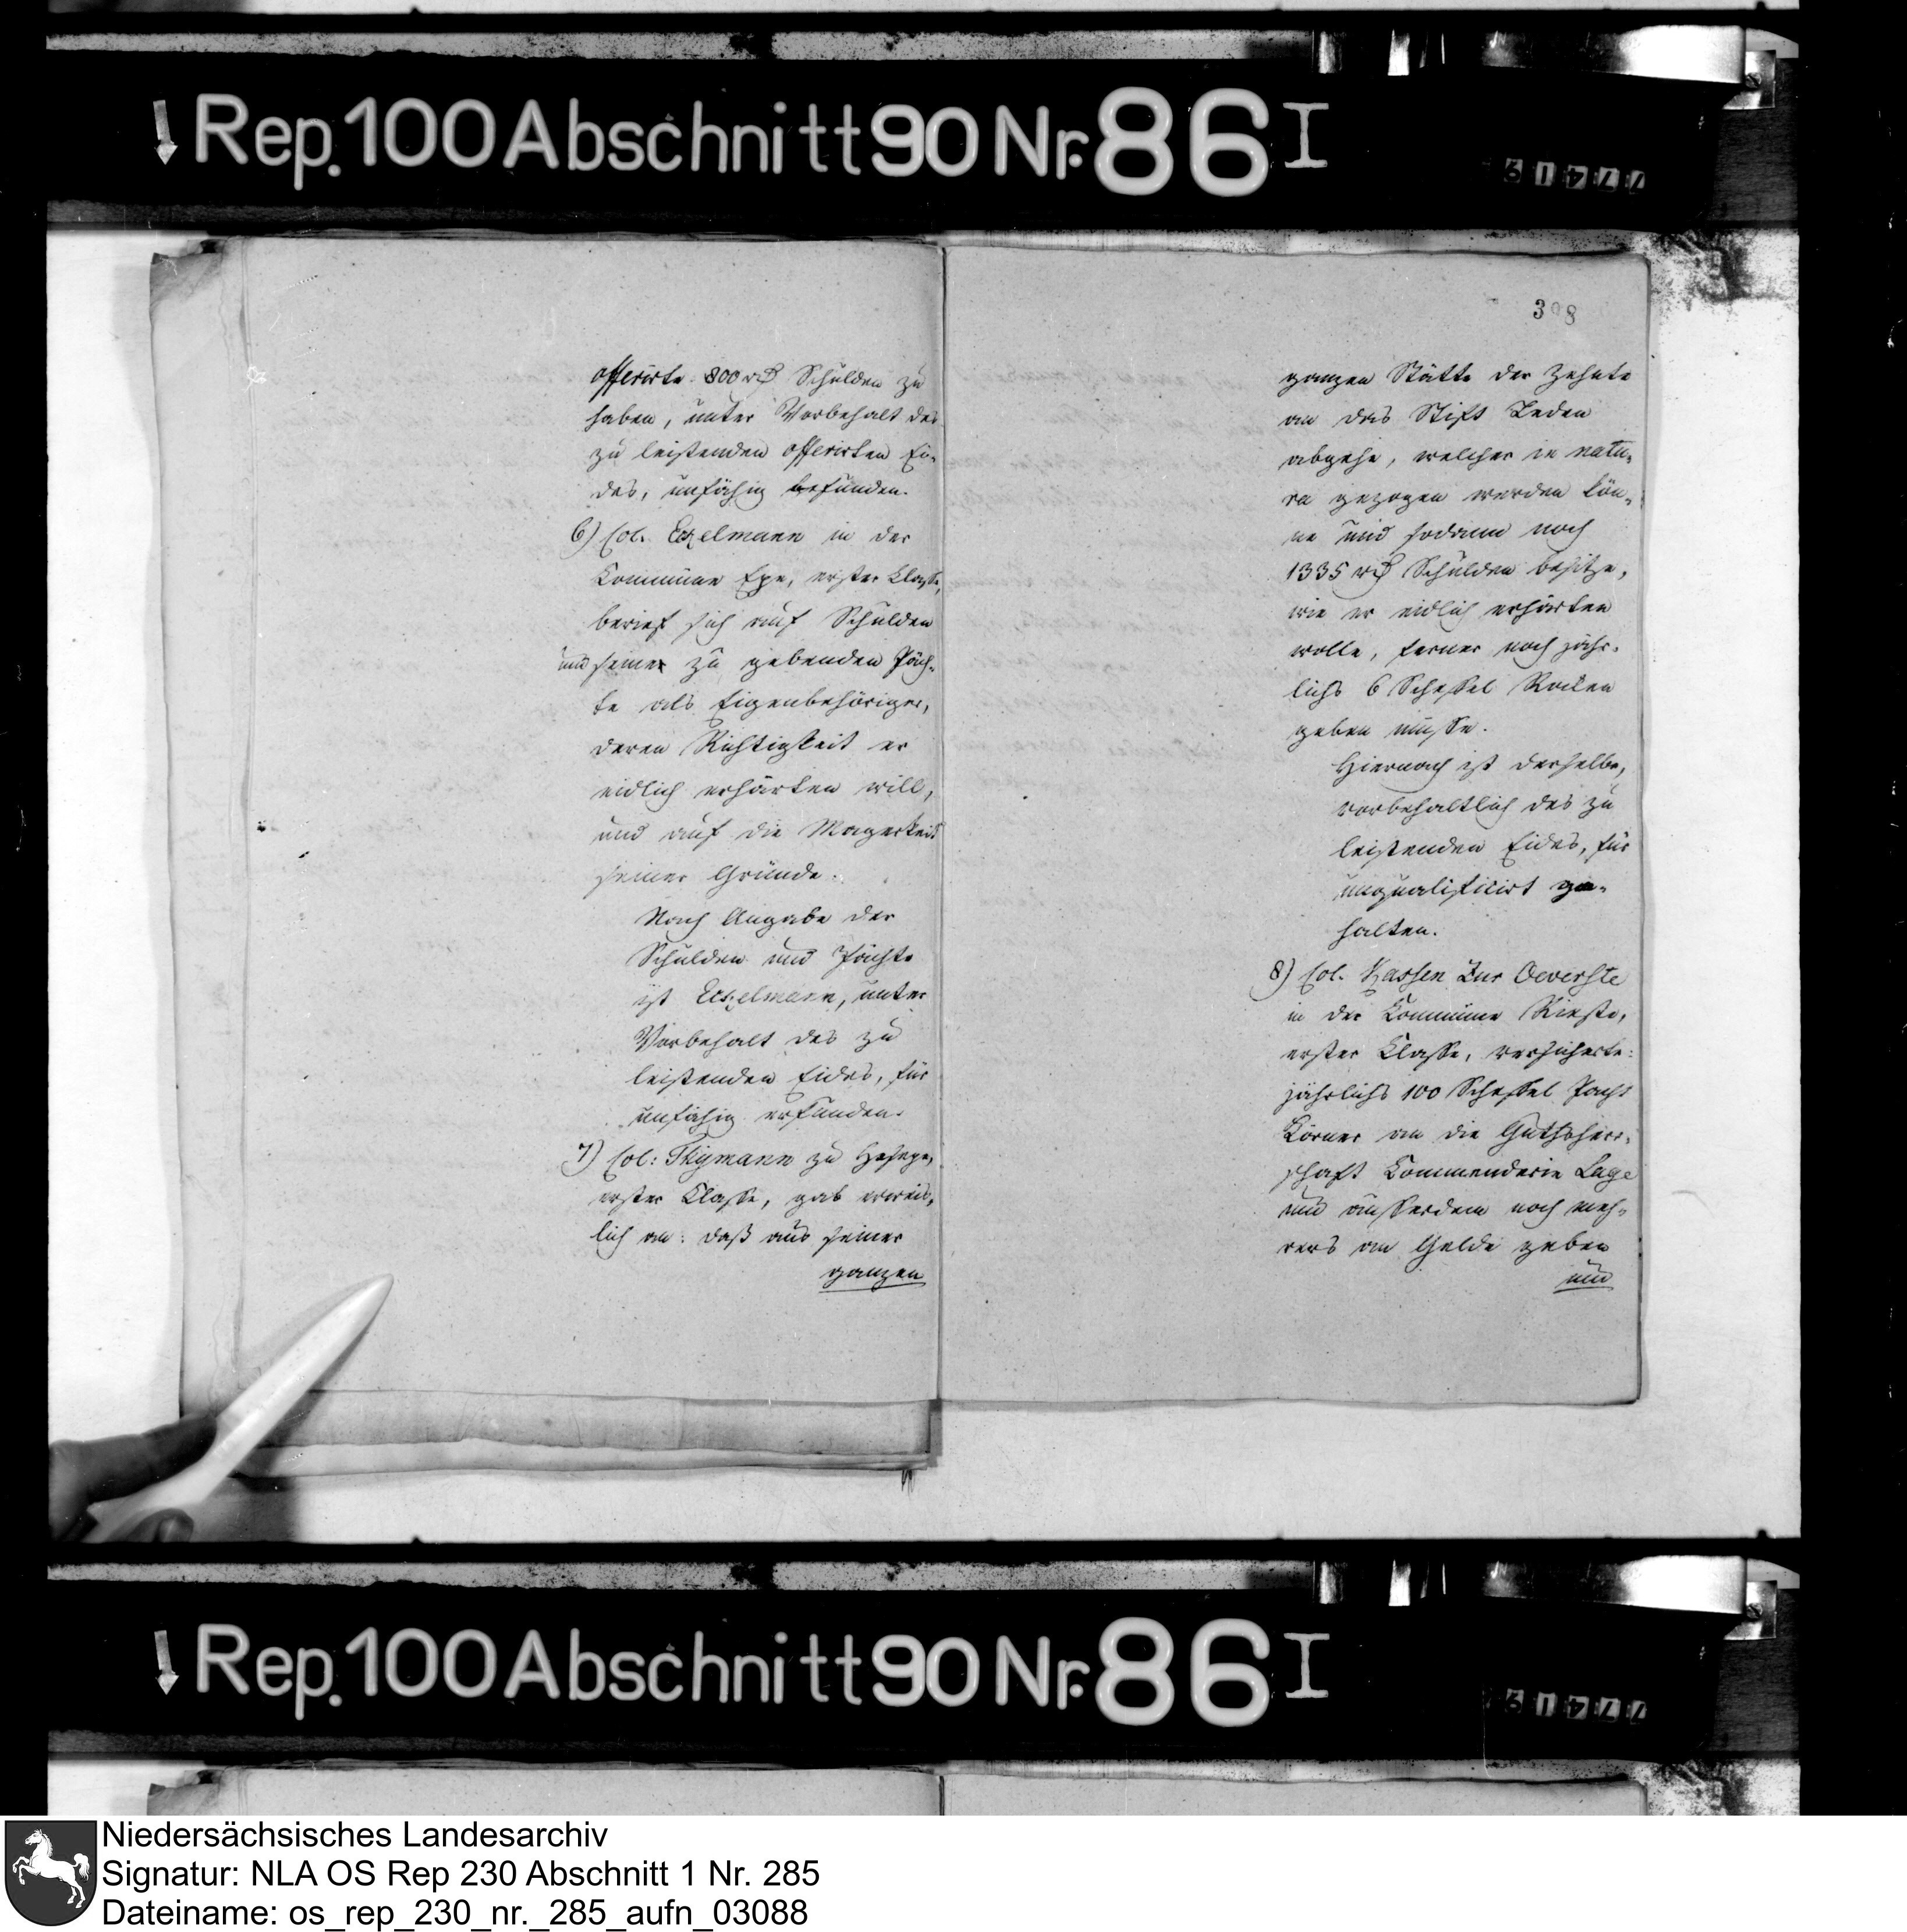 Rep. 100 Abschnitt 90 Nr. 86 I
77419
offerirte 800 rθ Schulden zu
haben, unter Vorbehalt des
zu leistenden offerirten Ei-
des, unfähig befunden.
6) Col. Eckelmann in der
Commune Epe, erster Classe,
berief sich auf Schulden
und seine zu gebenden Päch-
te als Eigenbehöriger,
deren Richtigkeit er
eidlich erhärten will,
und auf die Magerkeit
seiner Gründe.
Nach Angabe der
Schulden und Pächte
ist Eckelmann, unter
Vorbehalt des zu
leistenden Eides, für
unfähig erkunden.
7) Col: Thymann zu Hesepe,
erster Classe, gab erweis-
lich an: daß aus seiner
ganzen
308
ganzen Stätte der Zehnte
an das Stift Leden
abgehe, welcher in natu-
ra gezogen werden kön-
ne und sodann noch
1335 rθ Schulden besitze,
wie er eidlich erhärten
wolle, ferner noch jähr-
lichs 6 Scheffel Rocken
geben müsse.
Hiernach ist derselbe,
vorbehaltlich des zu
leistenden Eides, für
unqualificirt ge-
halten.
8) Col. Kassen zur Oeverste
in der Commune Rieste,
erster Classe, versicherte:
jährlichs 100 Scheffel Pacht
Körner an die Gutsherr-
schaft Commenderie Lage
und ausserdem noch meh-
rers an Gelde geben
und
Rep. 100 Abschnitt 90 Nr. 86 I
77419
Niedersächsisches Landesarchiv
Signatur: NLA OS Rep 230 Abschnitt 1 Nr. 285
Dateiname: os_rep_230_nr._285_aufn_03088